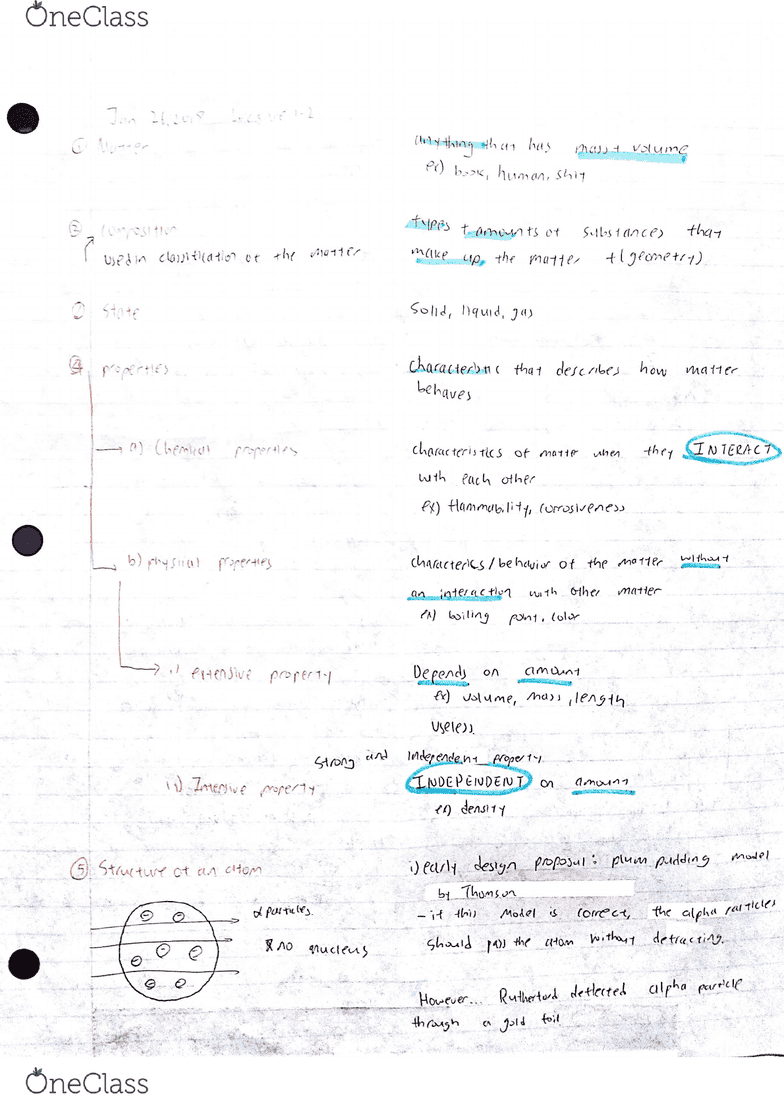 OneClass
Jan 26, 2018 Lecture 1-2
① Matter
anything that has mass + volume
ex) book, human, shit
② composition
used in classification of the matter
types + amounts of substances that
make up the matter + (geometry)
State
Solid, liquid, gas
④ properties
Characteristic that describes how matter
behaves
a) Chemical properties
characteristics of matter when they INTERACT
with each other
ex) flammability, corrosiveness
b) physical properties
characterics/behavior of the matter without
an interaction with other matter
ex) boiling point, color
i) extensive property
Depends on amount
ex) volume, mass, length
useless.
Strong and Independent property
ii) Intensive property
INDEPENDENT on amount
ex) density
⑤ Structure of an atom
i) early design proposal: plum pudding model
by Thomson
- if this model is correct, the alpha particles
should pass the atom without detracting.
α particles
no nucleus
However... Rutherford deflected alpha particle
through a gold foil
OneClass